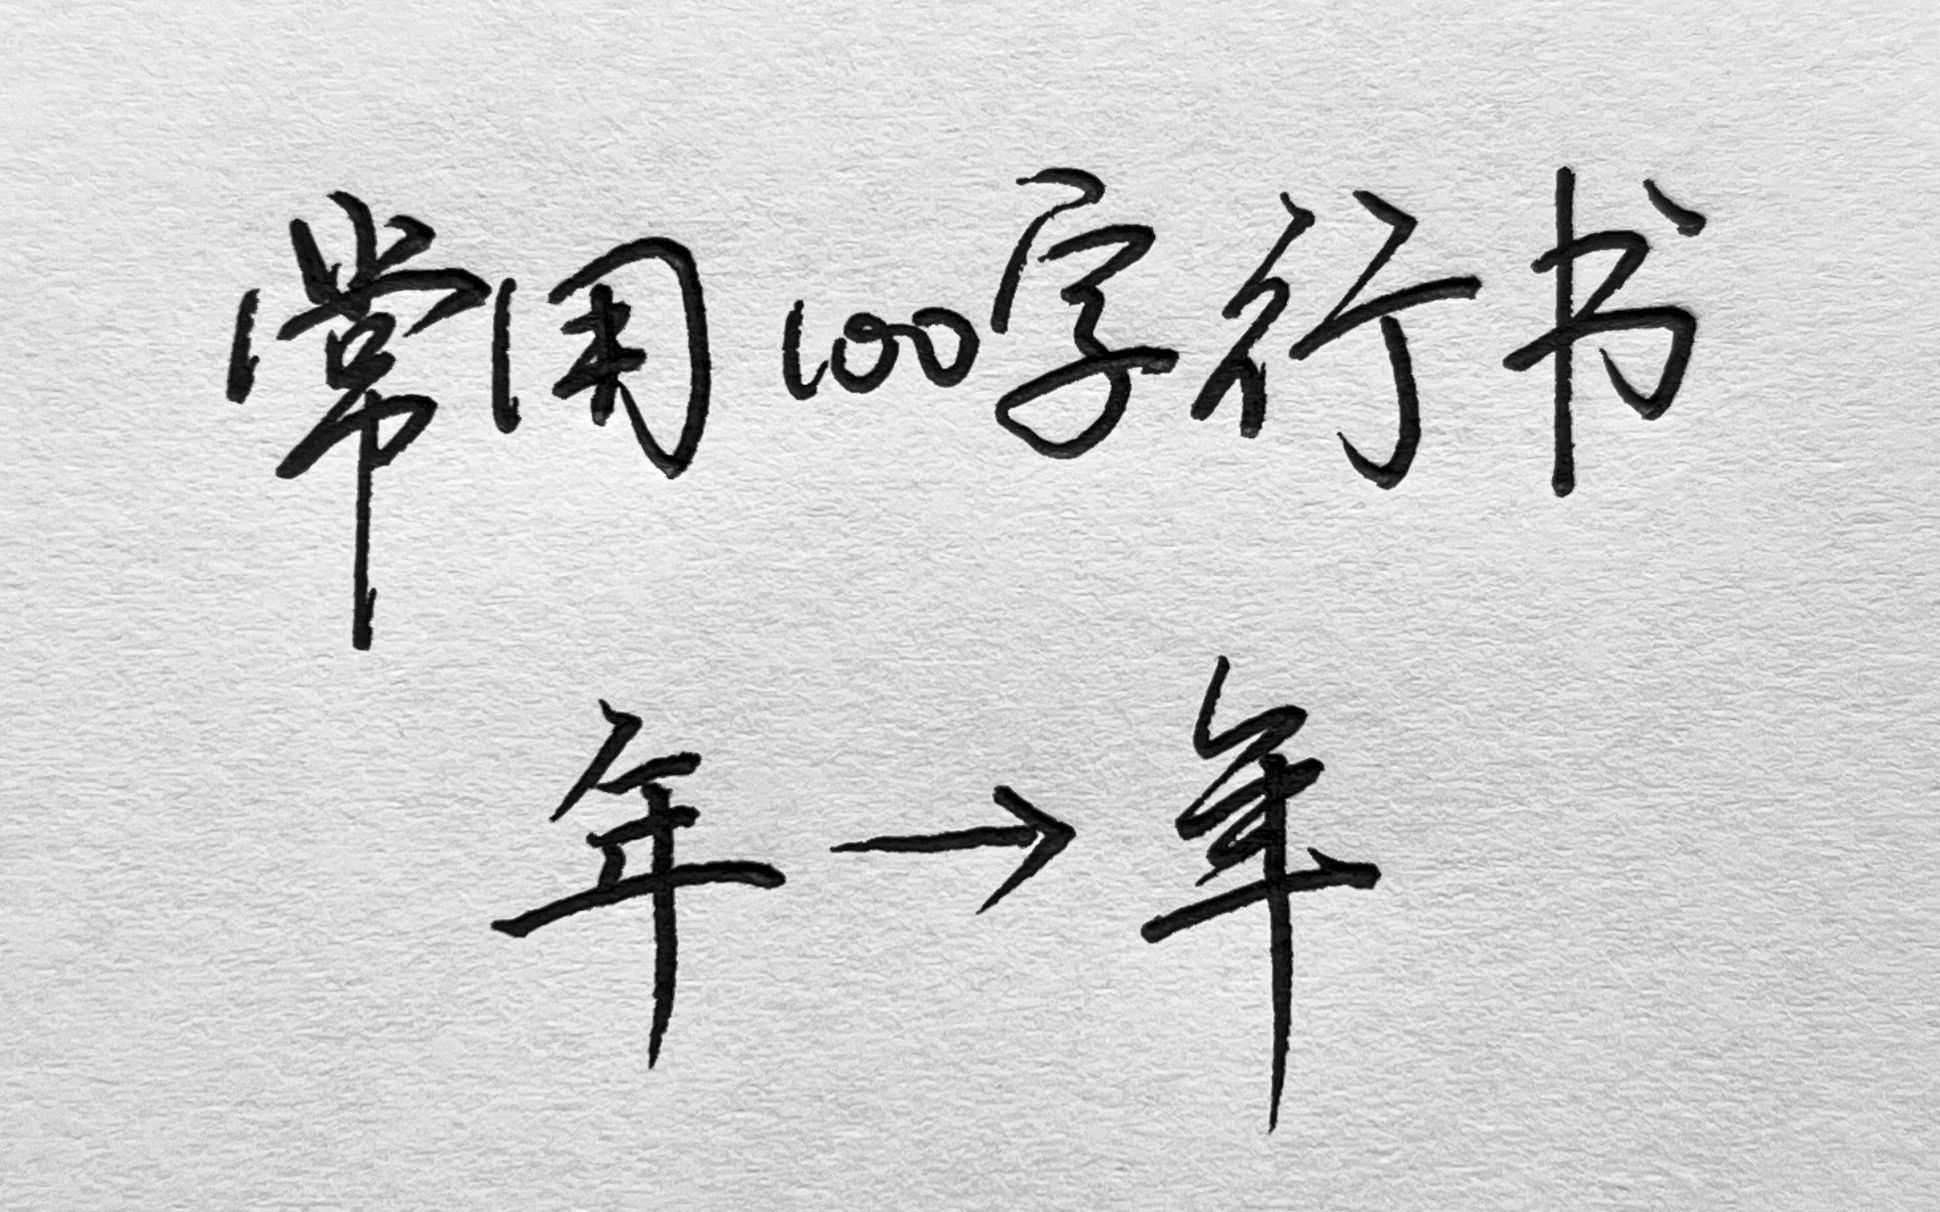 常用100字行书
年→年